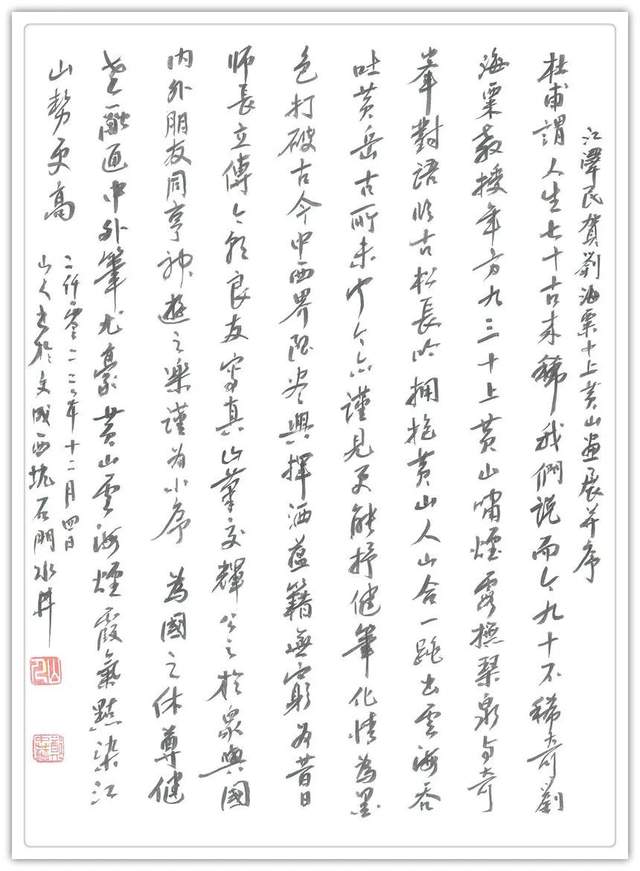 江澤民賀劉海粟十上黄山畫展并序
杜甫謂人生七十古来稀我們说而今九十不稀奇劉
海粟教授年方九三十上黄山嘯煙雲撫琴泉与奇
峯對語临古松長吟擁抱黄山人山合一跳出雲海吞
吐黄岳古所未有今亦謹見更能抒健筆化情為墨
色打破古今中西界限尽興揮洒蕴籍無窮为昔日
师長立傳今朝良友寫真山筆交輝公之於眾與國
内外朋友同享神遊之樂謹为小序 為國之休尊健
老融通中外筆尤豪黄山雲海煙霞氣點染江
山勢更高
二仟零二二年十二月四日
山人书於文成西坑石門水井
山人